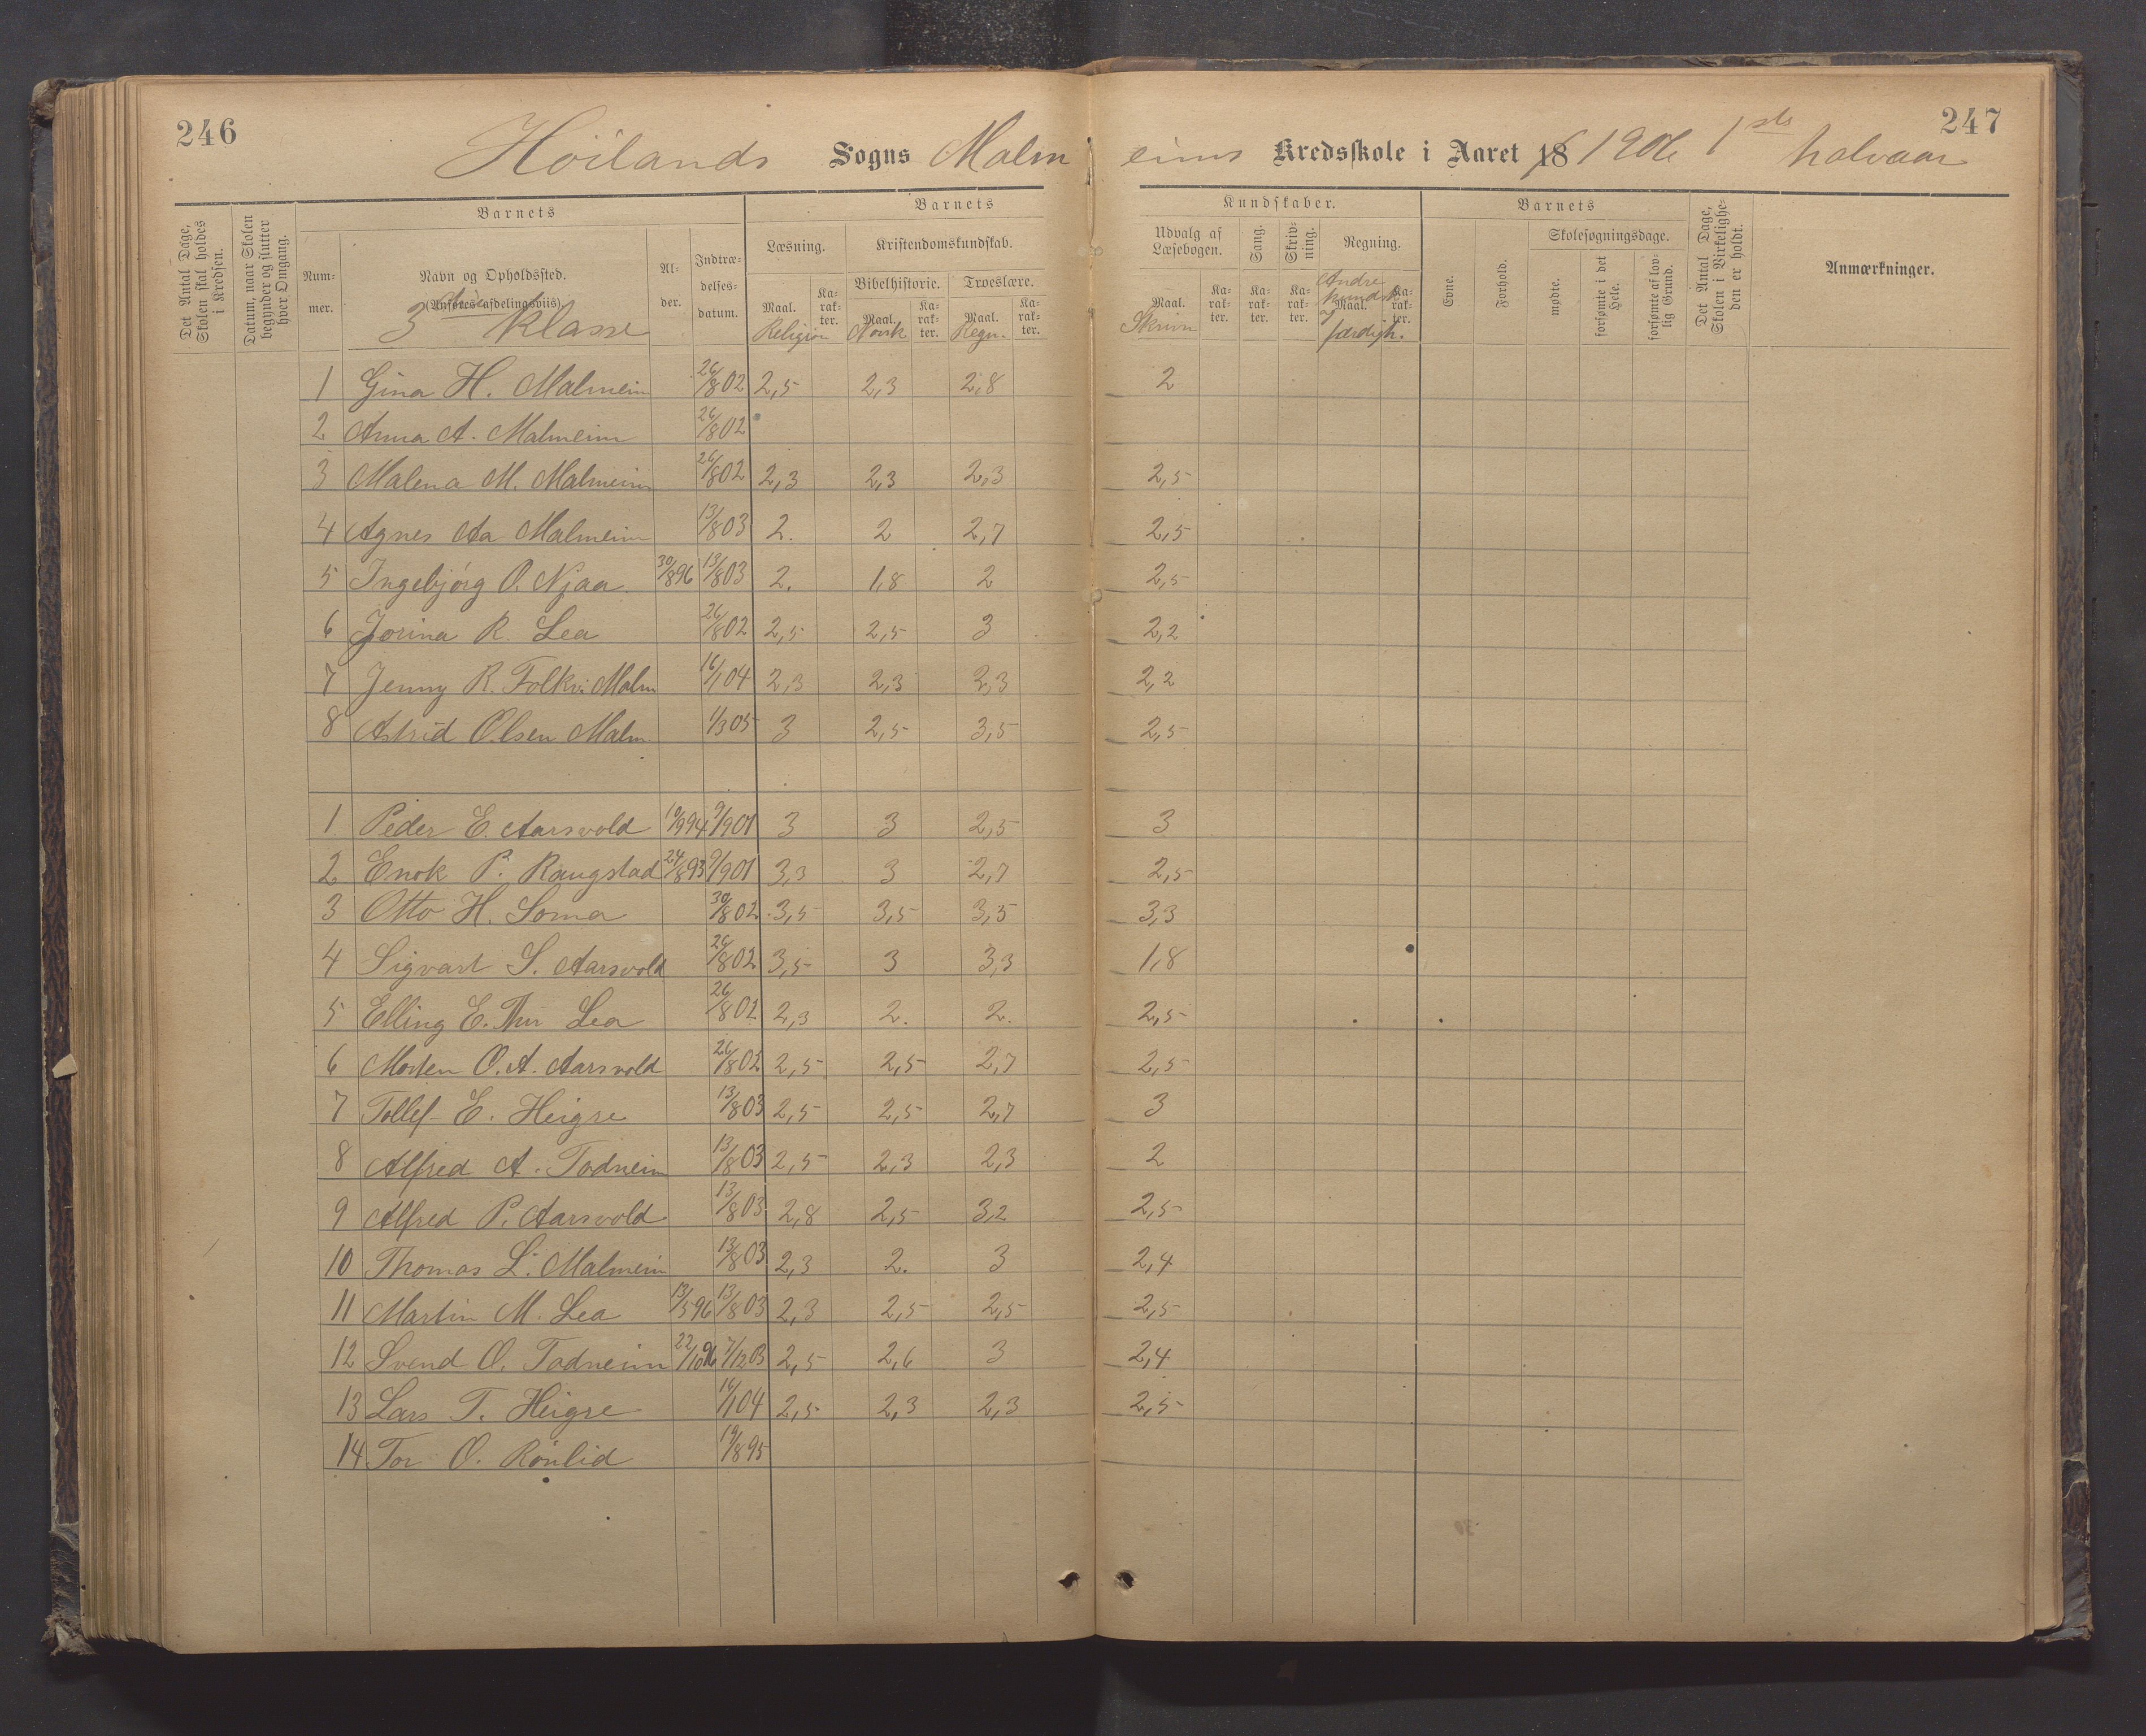 246
247
Höilands Sogns Malmeims Kredsskole i Aaret 18 1906 1ste halvaar
Det Antal Dage, Skolen skal holdes i Kredsen.
Datum, naar Skolen begynder og slutter hver Omgang.
Barnets
Num-mer.
Navn og Opholdssted.
(Anføres afdelingsviis)
3die Klasse
Al-der.
Indtræ-delses-datum.
Barnets
Kundskaber.
Læsning.
Kristendomskundskab.
Bibelhistorie. Troeslære.
Maal. Ka-rak-ter. Maal. Ka-rak-ter. Maal. Ka-rak-ter.
Religion Norsk Regn.
Udvalg af Læsebogen.
Maal. Ka-rak-ter.
Skrivn
Sang. Ka-rak-ter.
Skriv-ning. Ka-rak-ter.
Regning.
Maal. Ka-rak-ter.
Andre kundsk. og færdigh.
Barnets
Evne. Forhold.
Skolesøgningsdage.
mødte. forsømte i det Hele. forsømte af lov-lig Grund.
Det Antal Dage, Skolen i Virkelighe-den er holdt.
Anmærkninger.
1 Gina H. Malmeim 26/8 02 2,5 2,3 2,8 2
2 Anna A. Malmeim 26/8 02
3 Malena M. Malmeim 26/8 02 2,3 2,3 2,3 2,5
4 Agnes Aa Malmeim 13/8 03 2. 2 2,7 2,5
5 Ingebjörg O. Njaa 30/8 96 13/8 03 2. 1,8 2 2,5
6 Jorina R. Lea 26/8 02 2,5 2,5 3 2,2
7 Jenny R. Folkv. Malm 16/1 04 2,3 2,3 2,3 2,2
8 Astrid Olsen Malm 1/3 05 3 2,5 3,5 2,5
1 Peder E. Aarsvold 10/9 94 9/9 01 3 3 2,5 3
2 Enok P. Raugstad 24/8 93 9/9 01 3,3 3 2,7 2,5
3 Otto H. Soma 30/8 02 3,5 3,5 3,5 3,3
4 Sigvart S. Aarsvold 26/8 02 3,5 3 3,3 1,8
5 Elling E. Lea 26/8 02 2,3 2. 2. 2,5
6 Morten O. A. Aarsvold 26/8 02 2,5 2,5 2,7 2,5
7 Tollef E. Heigre 13/8 03 2,5 2,5 2,7 3
8 Alfred A. Todneim 13/8 03 2,5 2,3 2,3 2
9 Alfred P. Aarsvold 13/8 03 2,8 2,5 3,2 2,5
10 Thomas L. Malmeim 13/8 03 2,3 2. 3 2,4
11 Martin M. Lea 13/5 96 13/8 03 2,3 2,5 2,5 2,5
12 Svend O. Todneim 22/10 96 7/12 03 2,5 2,6 3 2,4
13 Lars T. Heigre 16/1 04 2,5 2,3 2,3 2,5
14 Tor O. Rönlid 19/8 95